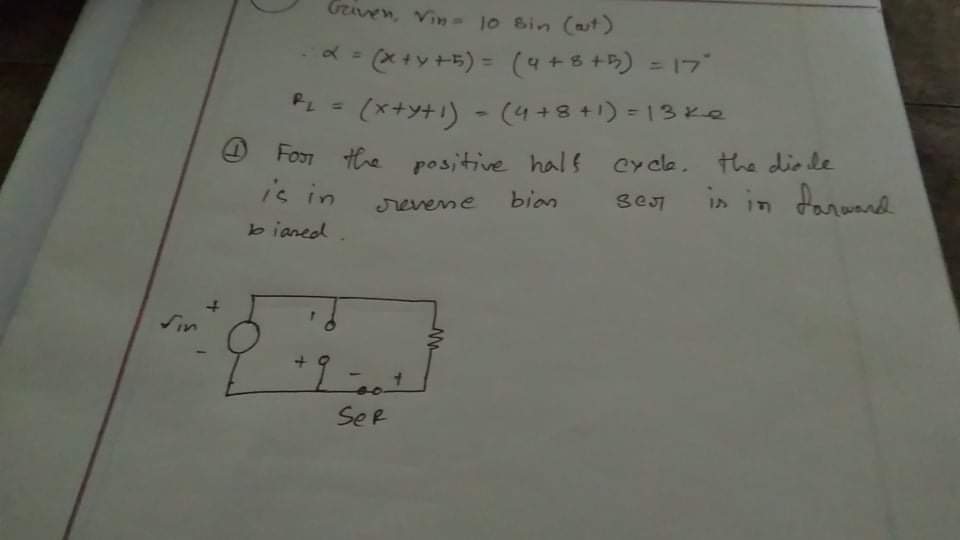 Given, Vin = 10 sin (ωt)
∴ α = (x+y+5) = (4+8+5) = 17°
RL = (x+y+1) = (4+8+1) = 13 kΩ
① For the positive half cycle. the diode
is in reverse bias scr is in forward
biased.
+
Vin
-
+ - +
SCR